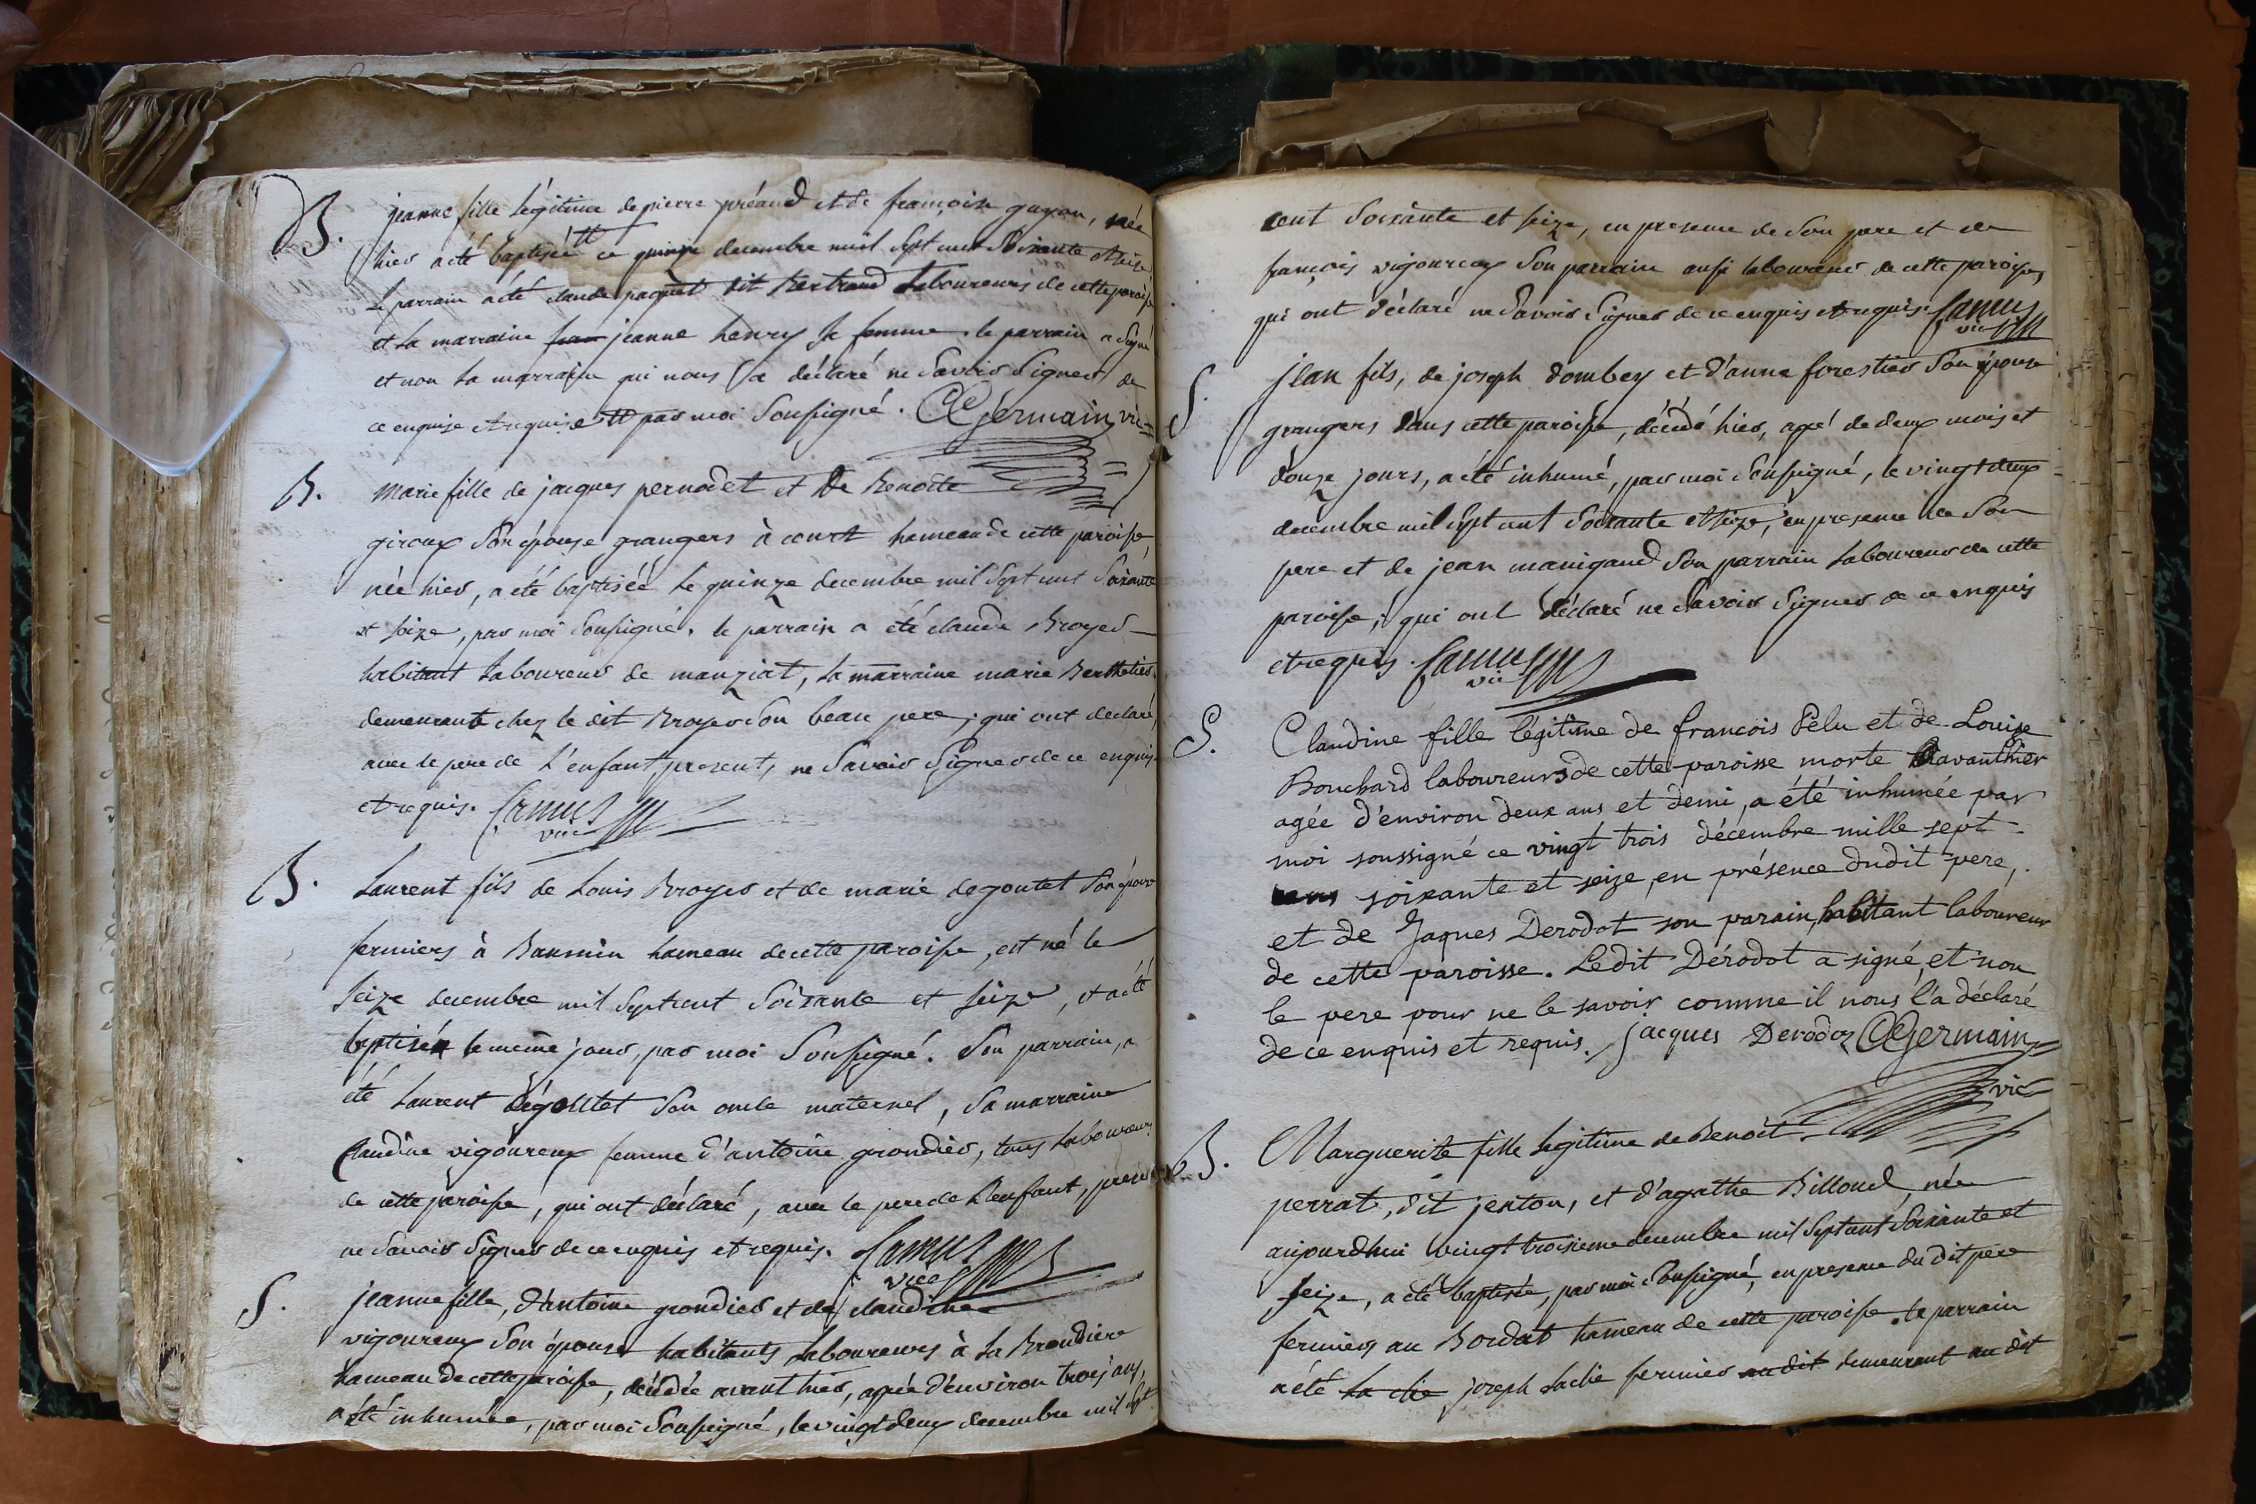 B. jeanne fille légitime de pierre préaud et de françoise guyon, née
hier a été baptisée ce quinze decembre mil sept cent soixante et seize
Le parrain a été claude paquet dit Bertrand Laboureurs de cette paroisse
et la marraine fran jeanne henry sa femme. le parrain a signé
et non la marraine qui nous l'a déclaré ne savoir signer de
ce enquise et requise par moi soussigné. Germain vic
B. Marie fille de jacques pernodet et de Benoite
giroux son épouse grangers à court hameau de cette paroisse,
née hier, a été baptisée le quinze decembre mil sept cent soixante
et seize, par moi soussigné. le parrain a été claude Broyer
habitant Laboureur de manziat, la marraine marie Berthelier
demeurante chez le dit Broyer son beau pere, qui ont declaré,
avec le pere de l'enfant, present, ne savoir signer de ce enquis
et requis. Camus vic
B. Laurent fils de Louis Broyer et de marie degoutet son épouse
fermiers à Baumin hameau de cette paroisse, est né le
seize decembre mil sept cent soixante et seize, et a été
baptisé le meme jour, par moi soussigné. Son parrain, a
été Laurent dégouttet son oncle maternel, sa marraine
Claudine vigoureux femme d'antoine grondier, tous laboureurs
de cette paroisse, qui ont déclaré, avec le pere de l'enfant, present
ne savoir signer de ce enquis et requis. Camus vice
S. jeanne fille, d'antoine grondier et de claudine
vigoureux son épouse habitants Laboureurs à la Brondiere
hameau de cette paroisse, décédée avant hier, agée d'environ trois ans,
a été inhumée, par moi soussigné, le vingt deux decembre mil sept
cent soixante et seize, en presence de son pere et de
françois vigoureux son parrain aussi laboureur de cette paroisse,
qui ont déclaré ne savoir signer de ce enquis et requis. Camus vic
S. jean fils, de joseph dombey et d'anne forestier son épouse
grangers dans cette paroisse, décédé hier, agé de deux mois et
douze jours, a été inhumé, par moi soussigné, le vingt deux
decembre mil sept cent soixante et seize, en presence de son
pere et de jean manigaud son parrain Laboureur de cette
paroisse, qui ont déclaré ne savoir signer de ce enquis
et requis. Camus vic
S. Claudine fille légitime de francois Pelu et de Louise
Bouchard laboureurs de cette paroisse morte avanthier
agée d'environ deux ans et demi, a été inhumée par
moi soussigné ce vingt trois décembre mille sept
cens soixante et seize, en présence dudit pere,
et de Jaques Derodot son parain, habitant laboureur
de cette paroisse. Ledit Dérodot a signé, et non
le pere pour ne le savoir comme il nous l'a déclaré
de ce enquis et requis. jacques Derodot Germain
vic
B. Marguerite fille legitime de Benoit
perrat, dit jenton, et d'agathe Billoud, née
aujourdhui vingt troisieme decembre mil sept cent soixante et
seize, a été baptisée, par moi soussigné, en presence du dit pere
fermiers au Bordat hameau de cette paroisse. le parrain
a été joseph fermier au dit demeurant au dit